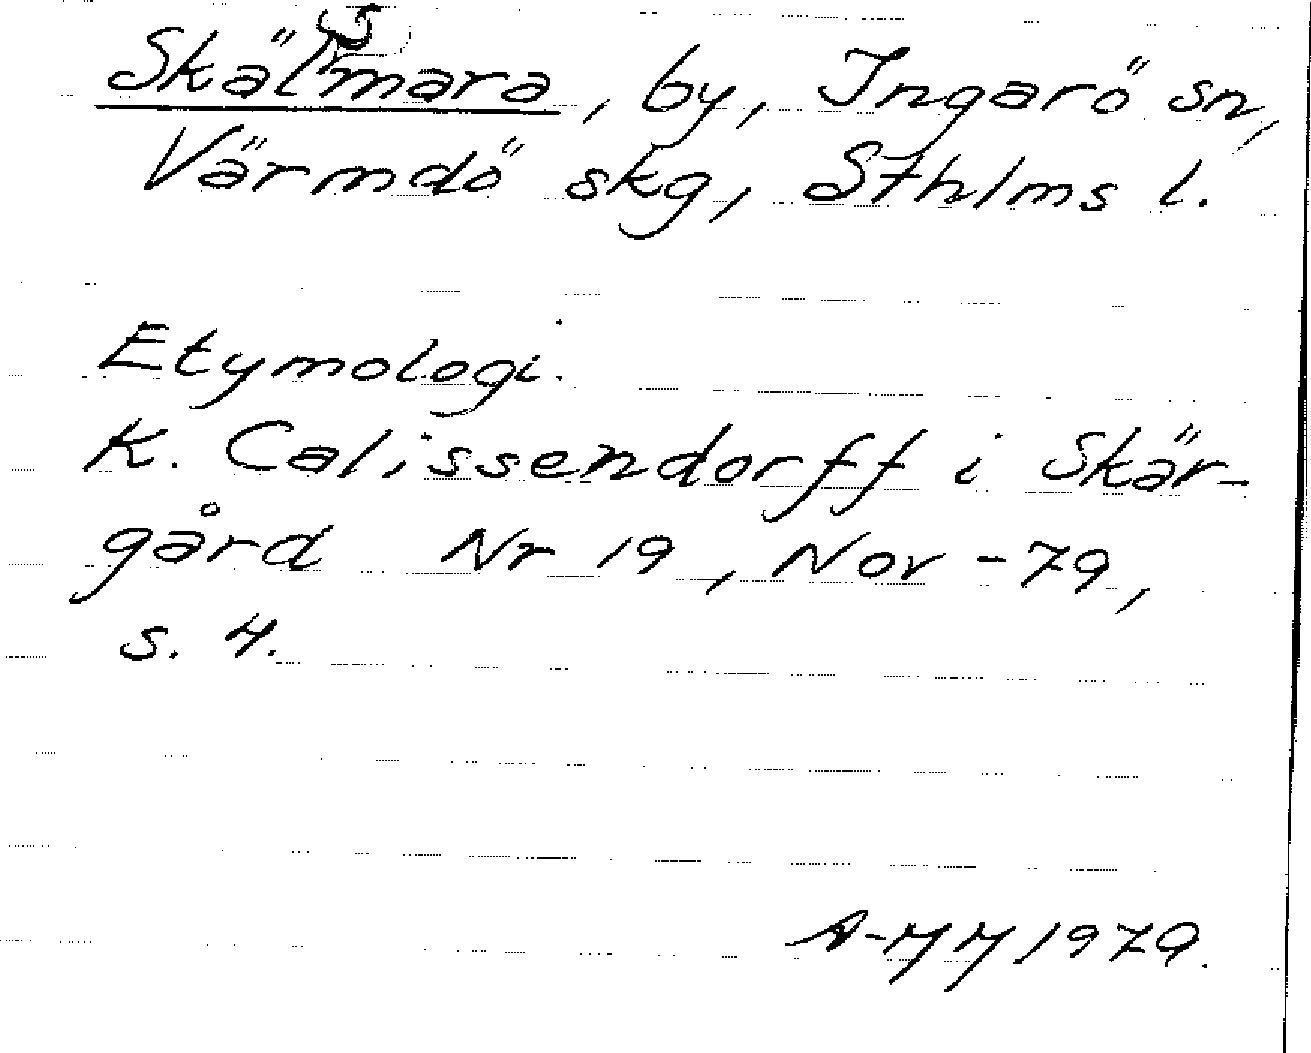 Skälsmara, by, Ingarö sn,
Värmdö skg, Sthlms l.
Etymologi.
K. Calissendorff i Skär-
gård Nr 19, Nov -79,
s. 4.
1979.